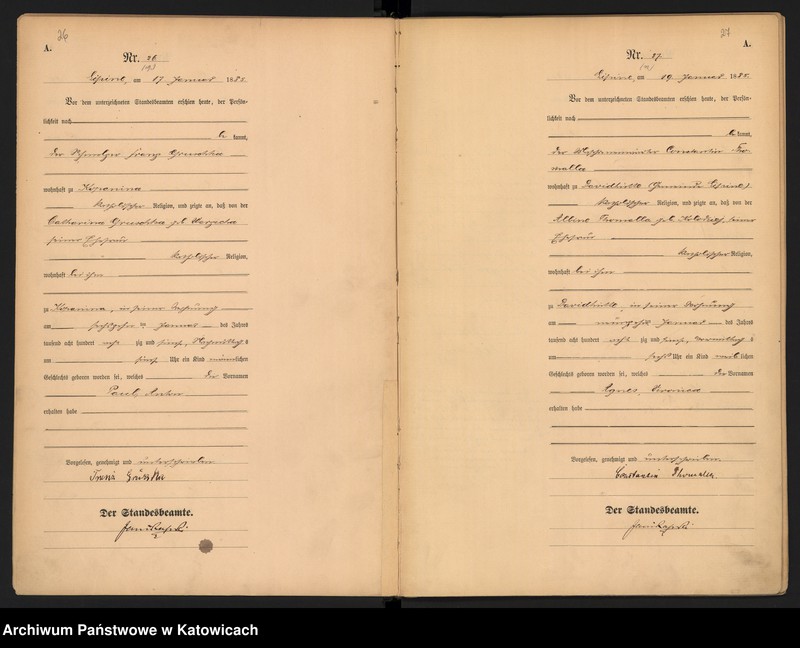 26
A.
Nr. 26
am 17 Januar 188
Vor dem unterzeichneten Standesbeamten erschien heute, der Persön-
lichkeit nach
kannt,
der Franz
wohnhaft zu Kopanina
katholischer Religion, und zeigte an, daß von der
Catharina geb.
seiner Ehefrau
katholischer Religion,
wohnhaft bei ihm
zu Kopanina, in seiner Wohnung
am Januar des Jahres
tausend acht hundert acht zig und fünf, Nachmittags
um fünf Uhr ein Kind männlichen
Geschlechts geboren worden sei, welches der Vornamen
Paul
erhalten habe
Vorgelesen, genehmigt und unterschrieben
Der Standesbeamte.
27
A.
Nr. 27.
am 19 Januar 188
Vor dem unterzeichneten Standesbeamten erschien heute, der Persön-
lichkeit nach
kannt,
der Constantin Tho-
malla
wohnhaft zu Davidhütte (Gemeinde
katholischer Religion, und zeigte an, daß von der
Albine Thomalla geb. seiner
Ehefrau
katholischer Religion,
wohnhaft bei ihm
zu Davidhütte, in seiner Wohnung
am Januar des Jahres
tausend acht hundert acht zig und fünf, Vormittags
um sechs Uhr ein Kind weiblichen
Geschlechts geboren worden sei, welches der Vornamen
Agnes, Veronica
erhalten habe
Vorgelesen, genehmigt und unterschrieben
Constantin Thomalla
Der Standesbeamte.
Archiwum Państwowe w Katowicach